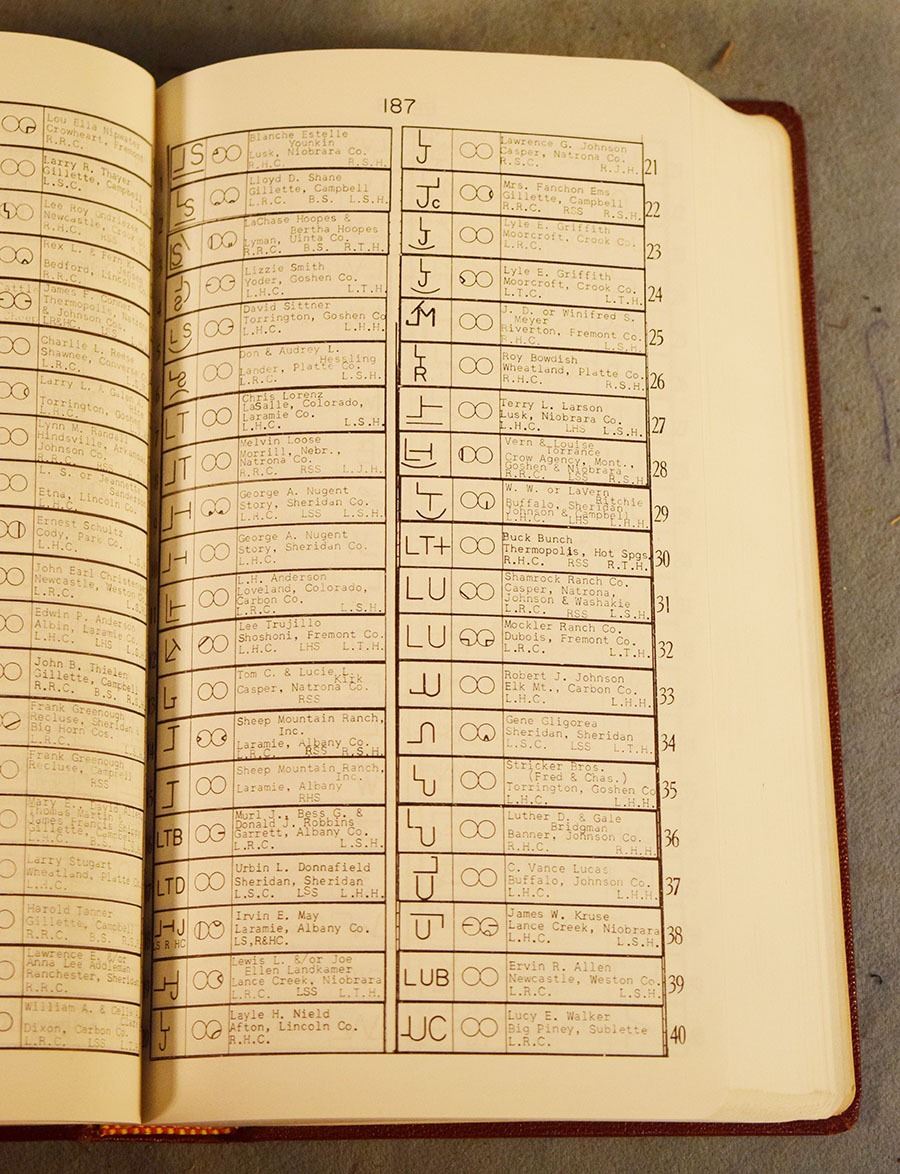 Lou Ella Nipwater
Crowheart, Fremont
R.R.C.
Larry R. Thayer
Gillette, Campbell
L.S.C.
Lee Roy
Newcastle, Crook
R.H.C. RSS
Rex L. & Fern
Bedford, Lincoln
R.R.C.
James F.
Thermopolis,
& Johnson Co.
LR&HC.
Charlie L. Reese
Shawnee, Converse
L.R.C.
Larry L. &
Torrington,
L.H.C.
Lynn M. Randall
Hindsville, Arkansas
Johnson Co.
R.R.C.
L. S. or Jeannette
Etna, Lincoln Co.
Ernest Schultz
Cody, Park Co.
L.H.C.
John Earl
Newcastle, Weston Co
L.R.C.
Edwin P. Anderson
Albin, Laramie Co.
L.H.C. LHS
John B. Thielen
Gillette, Campbell
R.R.C. B.S.
Frank Greenough
Recluse, Sheridan &
Big Horn Cos.
L.R.C.
Frank Greenough
Recluse, Campbell
RSS
Larry Stugart
Wheatland, Platte
L.H.C.
Harold Tanner
Gillette, Campbell
R.R.C. B.S.
Lawrence E. &/or
Anna Lee Adoleman
Ranchester, Sheridan
R.R.C.
William A. &
Dixon, Carbon Co.
L.R.C. LSS
187
JS
Blanche Estelle
Younkin
Lusk, Niobrara Co.
R.H.C. R.S.H.
Lloyd D. Shane
Gillette, Campbell
L.R.C. B.S. L.S.H.
LaChase Hoopes &
Bertha Hoopes
Lyman, Uinta Co.
R.R.C. B.S. R.T.H.
Lizzie Smith
Yoder, Goshen Co.
L.H.C. L.T.H.
LS
David Sittner
Torrington, Goshen Co
L.H.C. L.H.H.
Don & Audrey L.
Hessling
Lander, Platte Co.
L.R.C. L.S.H.
LT
Chris Lorenz
LaSalle, Colorado,
Laramie Co.
L.H.C. L.S.H.
JT
Melvin Loose
Morrill, Nebr.,
Natrona Co.
R.R.C. RSS L.J.H.
George A. Nugent
Story, Sheridan Co.
L.R.C. LSS L.S.H.
George A. Nugent
Story, Sheridan Co.
L.H.C.
L.H. Anderson
Loveland, Colorado,
Carbon Co.
L.R.C. L.S.H.
Lee Trujillo
Shoshoni, Fremont Co.
L.H.C. LHS L.T.H.
Tom C. & Lucie L.
Klik
Casper, Natrona Co.
RSS
Sheep Mountain Ranch,
Inc.
Laramie, Albany Co.
L.R.C. RSS R.S.H.
Sheep Mountain Ranch,
Inc.
Laramie, Albany
RHS
LTB
Murl J., Bess G. &
Donald J. Robbins
Garrett, Albany Co.
L.R.C. L.S.H.
LTD
Urbin L. Donnafield
Sheridan, Sheridan
L.S.C. LSS L.H.H.
LS R HC
Irvin E. May
Laramie, Albany Co.
LS,R&HC.
Lewis L. &/or Joe
Ellen Landkamer
Lance Creek, Niobrara
L.R.C. LSS L.T.H.
Layle H. Nield
Afton, Lincoln Co.
R.H.C.
Lawrence G. Johnson
Casper, Natrona Co.
R.S.C. R.J.H.
21
Mrs. Fanchon Ems
Gillette, Campbell
R.R.C. RSS R.S.H.
22
Lyle E. Griffith
Moorcroft, Crook Co.
L.R.C.
23
Lyle E. Griffith
Moorcroft, Crook Co.
L.T.C. L.T.H.
24
J. D. or Winifred S.
Meyer
Riverton, Fremont Co.
R.H.C. L.S.H.
25
Roy Bowdish
Wheatland, Platte Co.
R.H.C. R.S.H.
26
Terry L. Larson
Lusk, Niobrara Co.
L.H.C. LHS L.S.H.
27
Vern & Louise
Torrance
Crow Agency, Mont.,
Goshen & Niobrara
R.R.C. LSS R.S.H.
28
W. W. or LaVern
Ritchie
Buffalo, Sheridan,
Johnson & Campbell
L.H.C. LHS L.H.H.
29
LT+
Buck Bunch
Thermopolis, Hot Spgs.
R.H.C. RSS R.T.H.
30
LU
Shamrock Ranch Co.
Casper, Natrona,
Johnson & Washakie
L.R.C. LSS L.S.H.
31
LU
Mockler Ranch Co.
Dubois, Fremont Co.
L.R.C. L.T.H.
32
Robert J. Johnson
Elk Mt., Carbon Co.
L.H.C. L.H.H.
33
Gene Gligorea
Sheridan, Sheridan
L.S.C. LSS L.T.H.
34
Stricker Bros.
(Fred & Chas.)
Torrington, Goshen Co
L.H.C. L.H.H.
35
Luther D. & Gale
Bridgman
Banner, Johnson Co.
R.H.C. R.H.H.
36
C. Vance Lucas
Buffalo, Johnson Co.
L.H.C. L.H.H.
37
James W. Kruse
Lance Creek, Niobrara
L.H.C. L.S.H.
38
LUB
Ervin R. Allen
Newcastle, Weston Co.
L.R.C. L.S.H.
39
UC
Lucy E. Walker
Big Piney, Sublette
L.R.C.
40